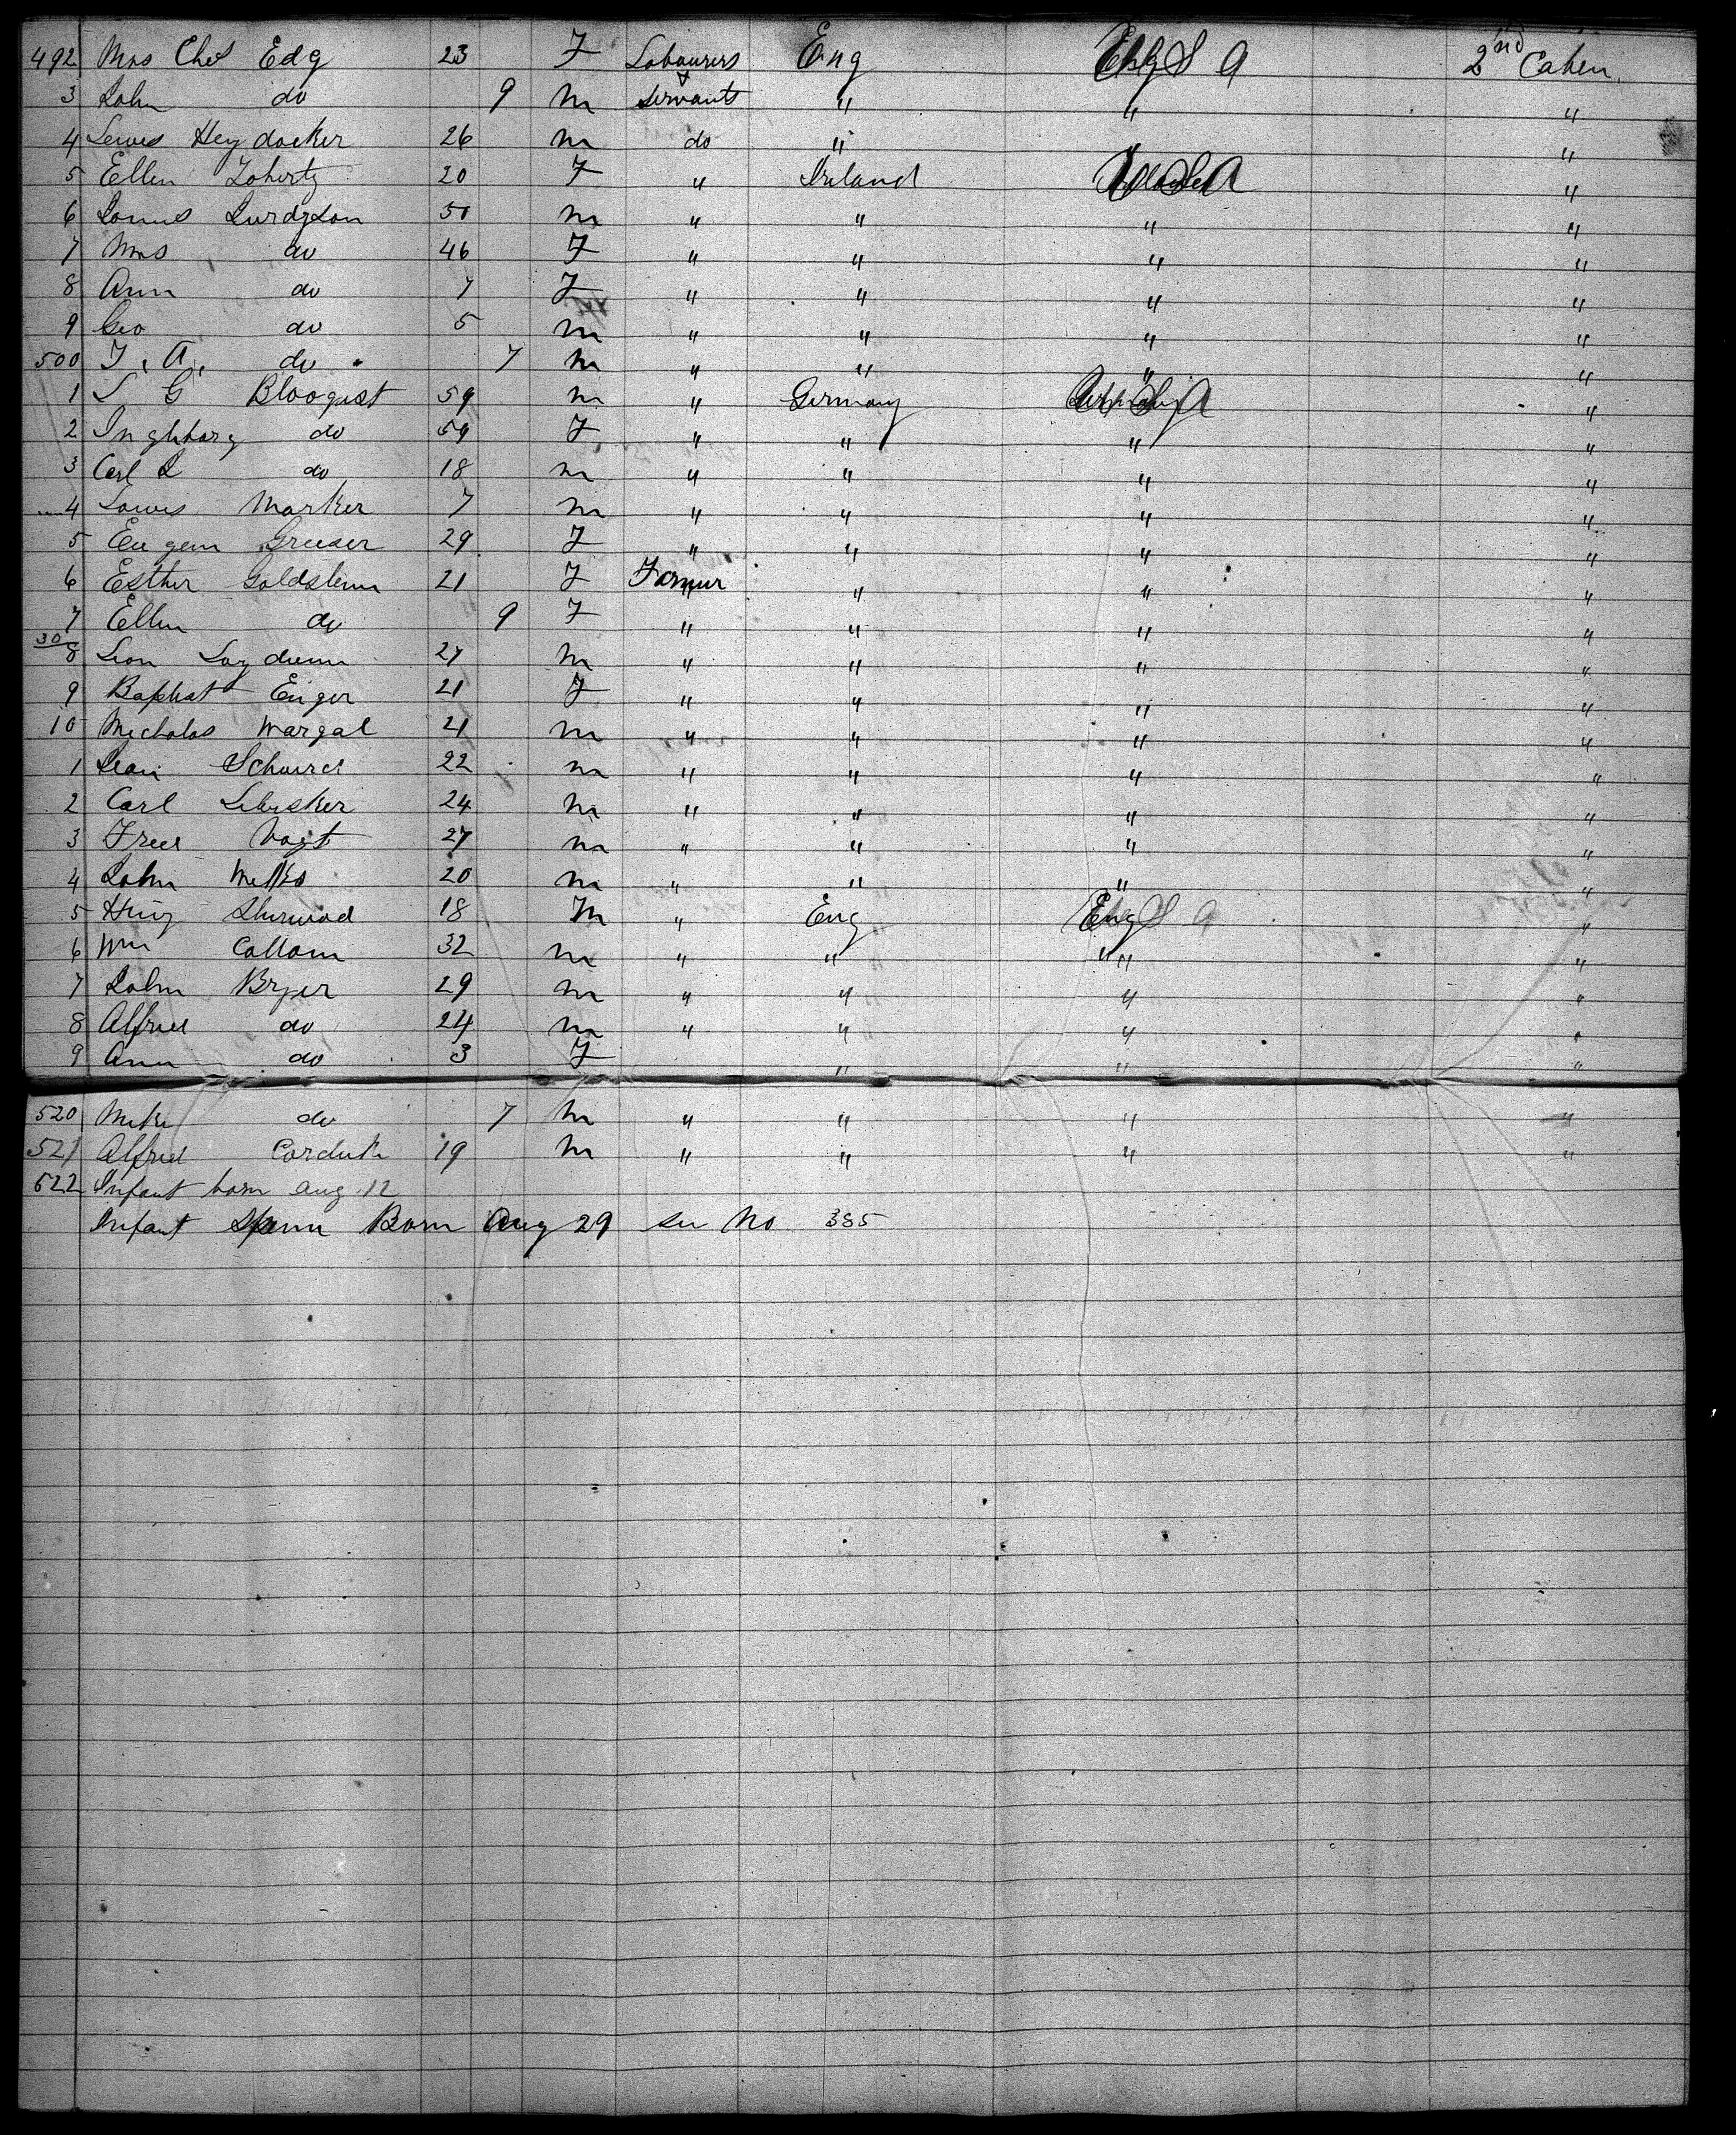 492 Mrs Chs Edg 23 F Labourers Eng U S A 2nd Caben
3 John do 9 m & Servants " " "
4 Lewis Heydocker 26 m do " " "
5 Ellen Dohirty 20 F " Ireland U S A "
6 50 m " " " "
7 Mrs do 46 F " " " "
8 Ann do 7 F " " " "
9 Geo do 5 m " " " "
500 J. A. do 7 m " " " "
1 S G Blooquist 59 m " Germany U S A "
2 Inghborg do 59 F " " " "
3 Carl L do 18 m " " " "
4 Louis Marker 7 m " " " "
5 Eugem Greeser 29 F " " " "
6 Esther Goldslenn 21 F Farmer " " "
7 Ellen do 9 F " " " "
30 8 Leon 27 m " " " "
9 Baptist Enger 21 F " " " "
10 Micholas Margal 21 m " " " "
1 22 m " " " "
2 Carl 24 m " " " "
3 Fred Vogt 27 m " " " "
4 John 20 m " " " "
5 Hny Sherwood 18 m " Eng U S A "
6 Wm Callam 32 m " " " "
7 John Bryer 29 m " " " "
8 Alfred do 24 m " " " "
9 Ann do 3 F " " "
520 Mike do 7 m " " " "
521 Alfred Corduk 19 m " " " "
522 Infant born Aug 12
Infant Born Aug 29 see No 385